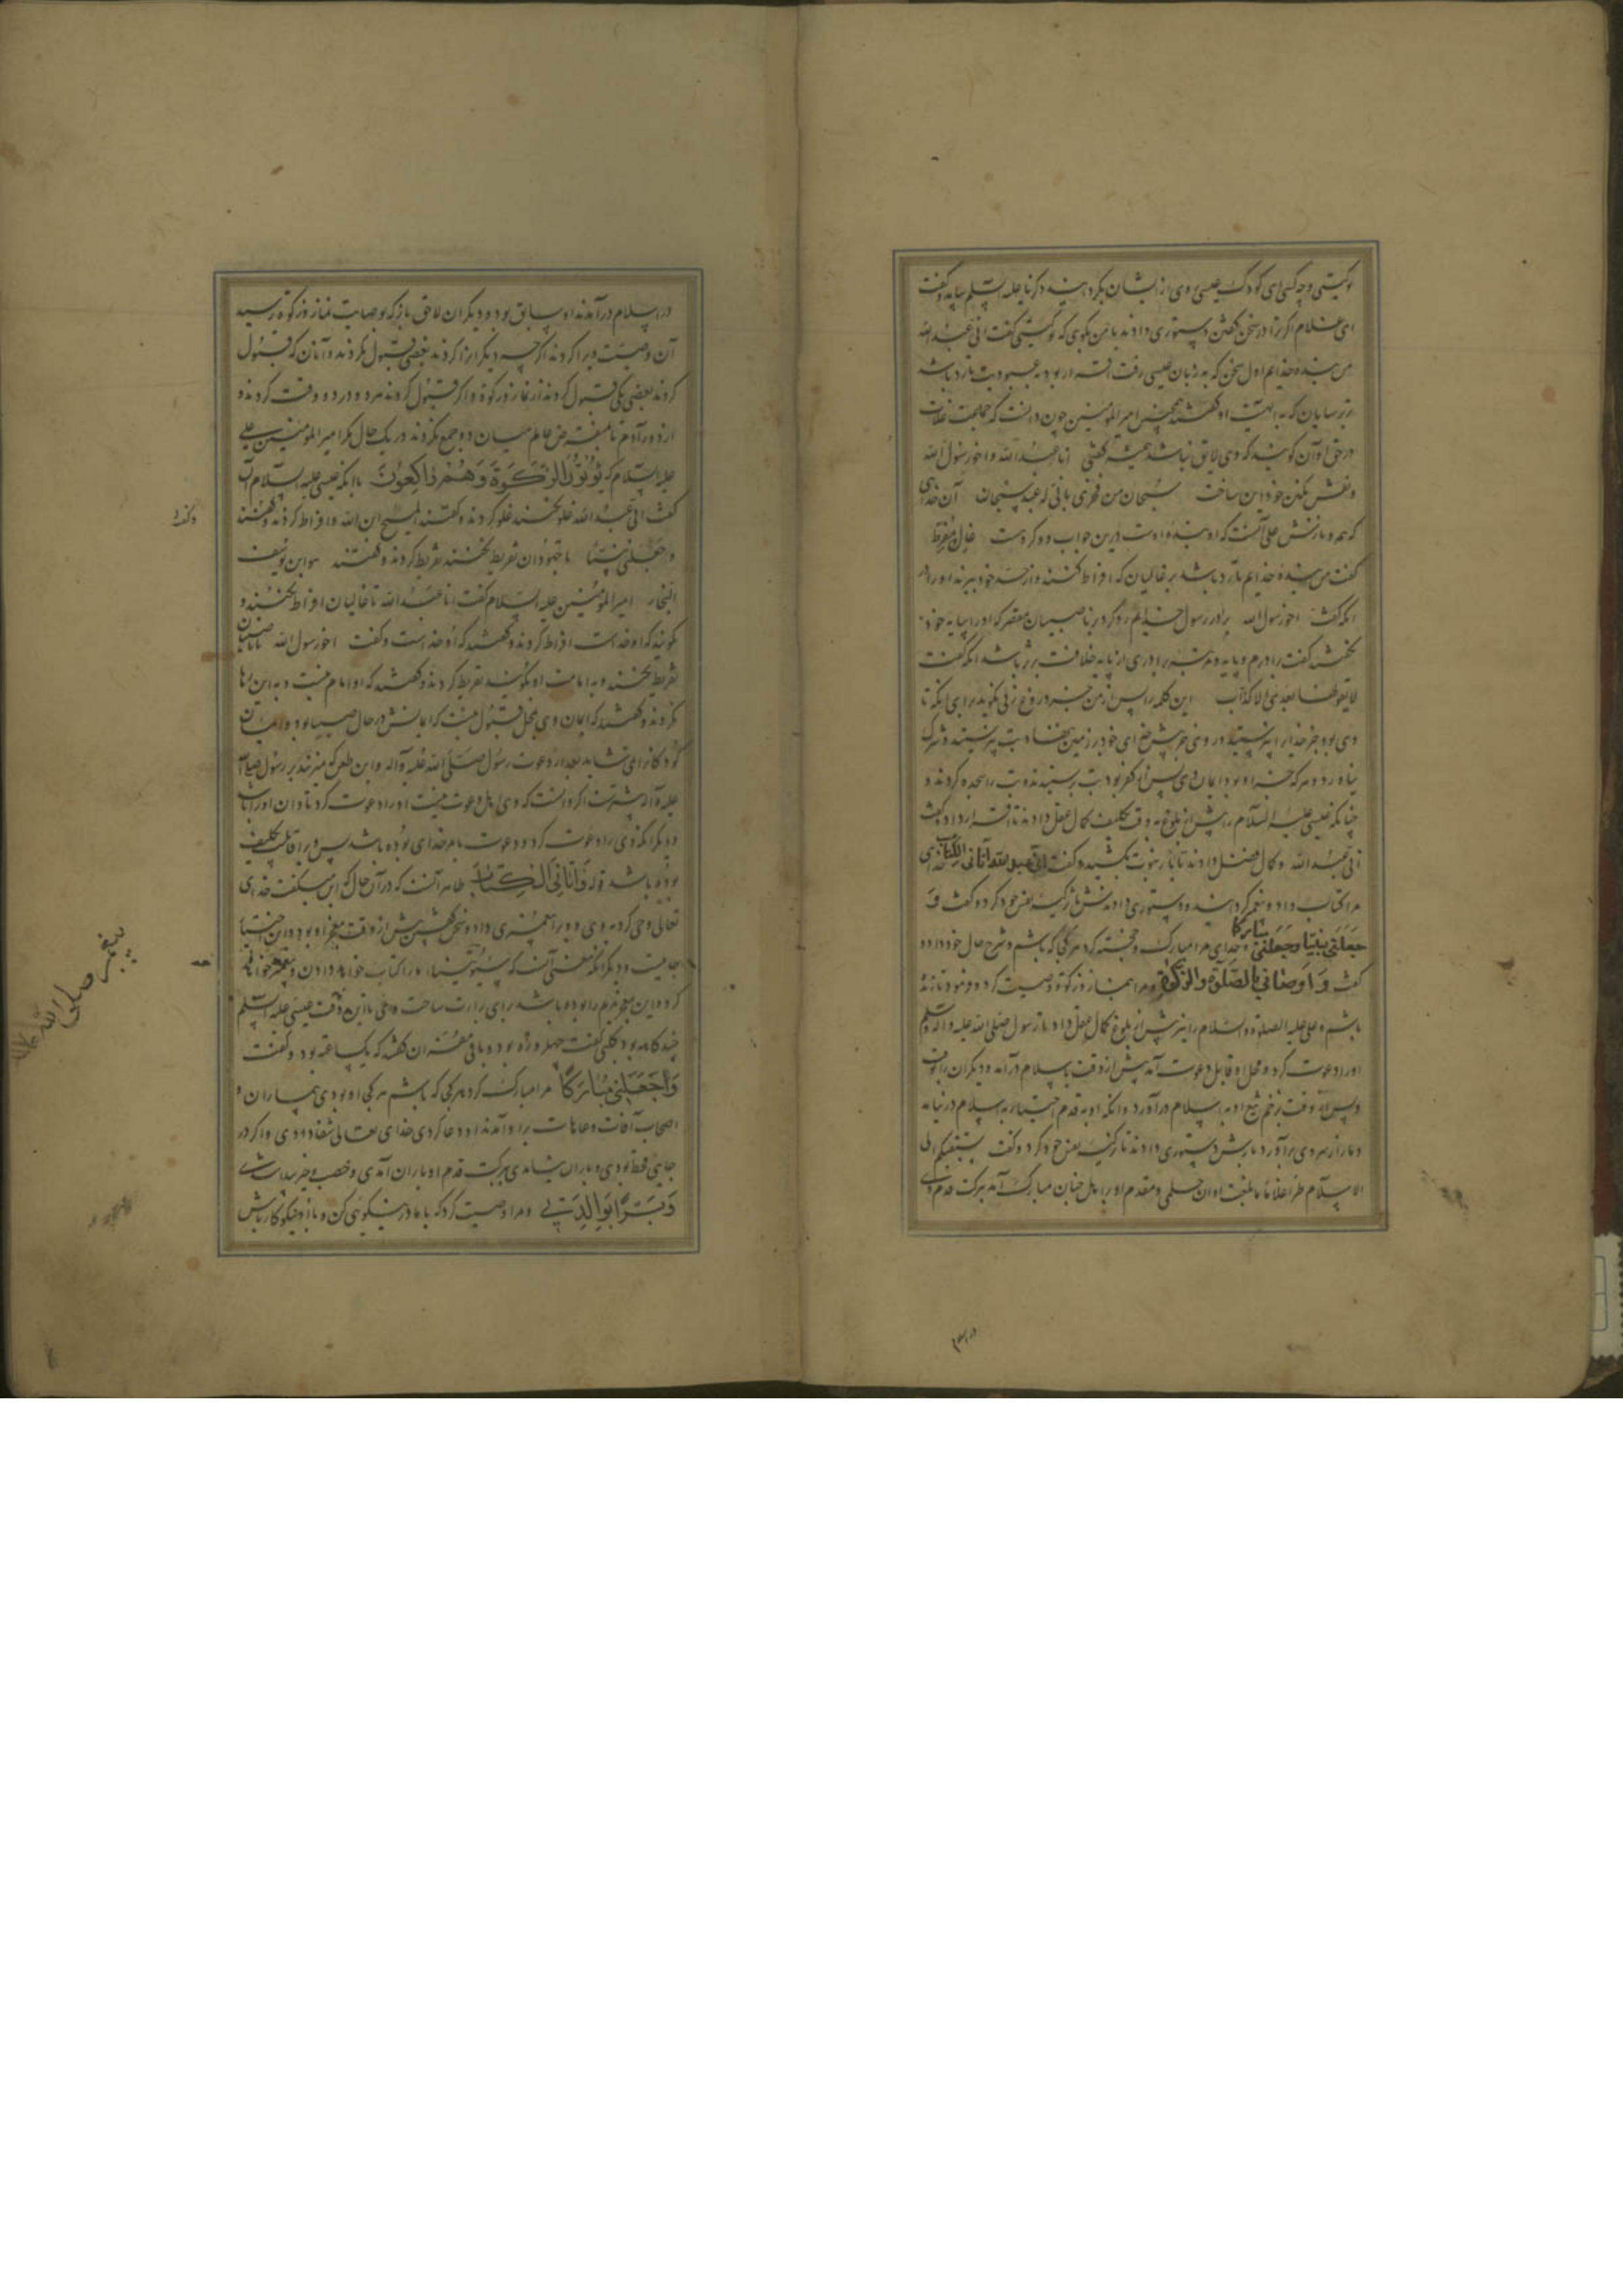 تو کیستی و چه کسی ای کودک عیسی روی از ایشان بگردانید زکریا علیه السلم بیامد و گفت
ای غلام اگر ترا در سخن گفتن دستوری دادند با من بگوی که تو کیستی گفت انی عبد الله
من بنده خدایم اول سخن که بر زبان عیسی رفت اقرار بود به عبودیت تا رد باشد
بر ترسایان که به الهیت او گفتند همچنین امیر المومنین چون دانست که جماعت غلات
در حق او آن گویند که وی لایق نباشد همیشه گفتی انا عبد الله و اخو رسول الله
و نقش نگین خود این ساخت سبحان من فخری بانی له عبد سبحان آن خدای
که همه نازش علی آنست که او بنده اوست درین جواب دو گروهست غال و مفرط
گفت من بنده خدایم تا رد باشد بر غالیان که افراط کنند و از حد خود ببرند او را و
انکه گفت اخو رسول الله برادر رسول خدایم رد کرد بر ناصبیان مقصر که او را بپایه خود
نگفتند گفت برادرم و پایه و مرتبه برادری از پایه خلافت برتر باشد آنکه گفت
لا یقولها بعدی الا کذاب این کلمه را پس از من جز دروغ زنی نگوید برای آنکه تا
وی بود جز خدای را نپرستید و روی خویش جز خدای خود بر زمین ننهاد و بت نپرستید و شرک
نیاورد و هر که جز او بود ایمان وی پس از کفر بود بت پرستیدند و بت را سجده کردند و
چنانکه عیسی علیه السلام را پیش از بلوغ به وقت تکلیف کمال عقل دادند تا اقرار داد و گفت
انی عبد الله و کمال فضل دادند تا بار نبوت بکشید و گفت انی عبد الله آتانی الکتاب خدای
مرا کتاب داد و پیغمبر گردانید و دستوری دادندش تا تزکیه نفس خود کرد و گفت و
جعلنی نبیا وجعلنی مبارکا و خدای مرا مبارک و خجسته کرد هر کجا که باشم و شرح حال خود داد و
گفت و اوصانی بالصلوة والزکوة و مرا بنماز و زکوة وصیت کرد و فرمود تا زنده
باشم و علی علیه الصلوة والسلام را نیز پیش از بلوغ کمال عقل داد تا رسول صلی الله علیه واله وسلم
او را دعوت کرد و محل او قابل دعوت آمد پیش از وقت باسلام درآمد و دیگران را بوقت
و پس از وقت بزخم تیغ او به اسلام درآورد و آنکه او به قدم اختیار به اسلام در نیامد
دمار از سر وی برآورد تا پیش دستوری دادند تا تزکیه نفس خود کرد و گفت سبقتکم الی
الاسلام طرا غلاما ما بلغت اوان حلمی و مقدم او بر اهل جنان مبارک آمد ببرکت قدم وی
در اسلام
در اسلام درآمدند او سابق بود و دیگران لاحق باز که بوصایت نماز و زکوة رسید
آن وصیت ویرا کردند اگر چه دیگران را کردند بعضی قبول نکردند و آنان که قبول
کردند بعضی یکی قبول کردند از نماز و زکوة و اگر قبول کردند هر دو در دو وقت کردند و
از دور آدم تا منقرض عالم میان دو جمع نکردند در یک حال مگر امیر المومنین علی
علیه السلام که یؤتون الزکوة وهم راکعون با آنکه عیسی علیه السلام
گفت انی عبد الله غلو نکنند غلو کردند و گفتند المسیح ابن الله و افراط کردند و گفتند
و جعلنی نبیا تا جهودان تفریط نکنند تفریط کردند و گفتند هو ابن یوسف
النجار امیر المؤمنین علیه السلام گفت انا عبد الله تا غالیان افراط نکنند و
نگویند که او خداست افراط کردند و گفتند که او خداست و گفت اخو رسول الله تا ناصبیان
تفریط نکنند و به امامت او نگویند تفریط کردند و گفتند که او امام نیست و به این رها
نکردند و گفتند که ایمان وی محل قبول نیست که ایمانش در حال صبی بود و ایمان
کودکان را نشاید بعد از دعوت رسول صلی الله علیه وآله و این طعن که میزنند بر رسول صلی الله
علیه وآله بیشترست اگر دانست که وی اهل دعوت نیست او را دعوت کرد نادان او را
و دیگر آنکه وی را دعوت کرد و دعوت به امر خدای بوده باشد پس ویرا قابل تکلیف
بوده باشد قوله وآتانی الکتاب ظاهر آنست که در آن حال که این میگفت خدای
تعالی وحی کرد به وی و ویرا پیغمبری داد و سخن گفتن پیش از وقت معجز او بود و این اختیار
کرد و این معجز مریم را بوده باشد برای برات ساحت وی تا این وقت عیسی علیه السلم
چند گاهه بود کلبی گفت چهل روزه بود و باقی مفسران گفتند که یک ساعته بود و گفت
وَاجَعَلَنی مُبارَکًا مرا مبارک کرد هر کجا که باشم هر کجا او بودی بیماران و
اصحاب آفات و عاهات بر او آمدندی او دعا کردی خدای تعالی شفا دادی و اگر در
جایی قحط بودی و باران نیامدی ببرکت قدم او باران آمدی و خصب و خیر پیدا شدی
وَبَرًّا بِوَالِدَتِی و مرا وصیت کرد که با مادر نیکوی کن و با او نیکوکار باش
پیغمبر صلی الله علیه